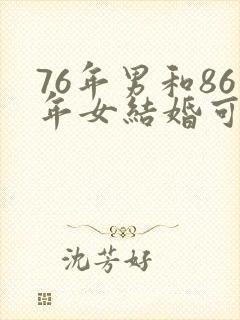 76年男和86
年女結婚可
沈芳好